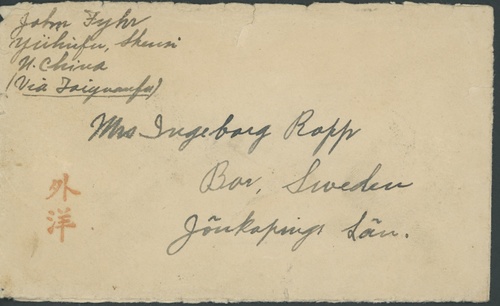 John Fyhr
Yülinfu, Shensi
N. China
(Via Taiyuanfu)
Mrs Ingeborg Ropp
Bor, Sweden
Jönkopings Län.
外洋